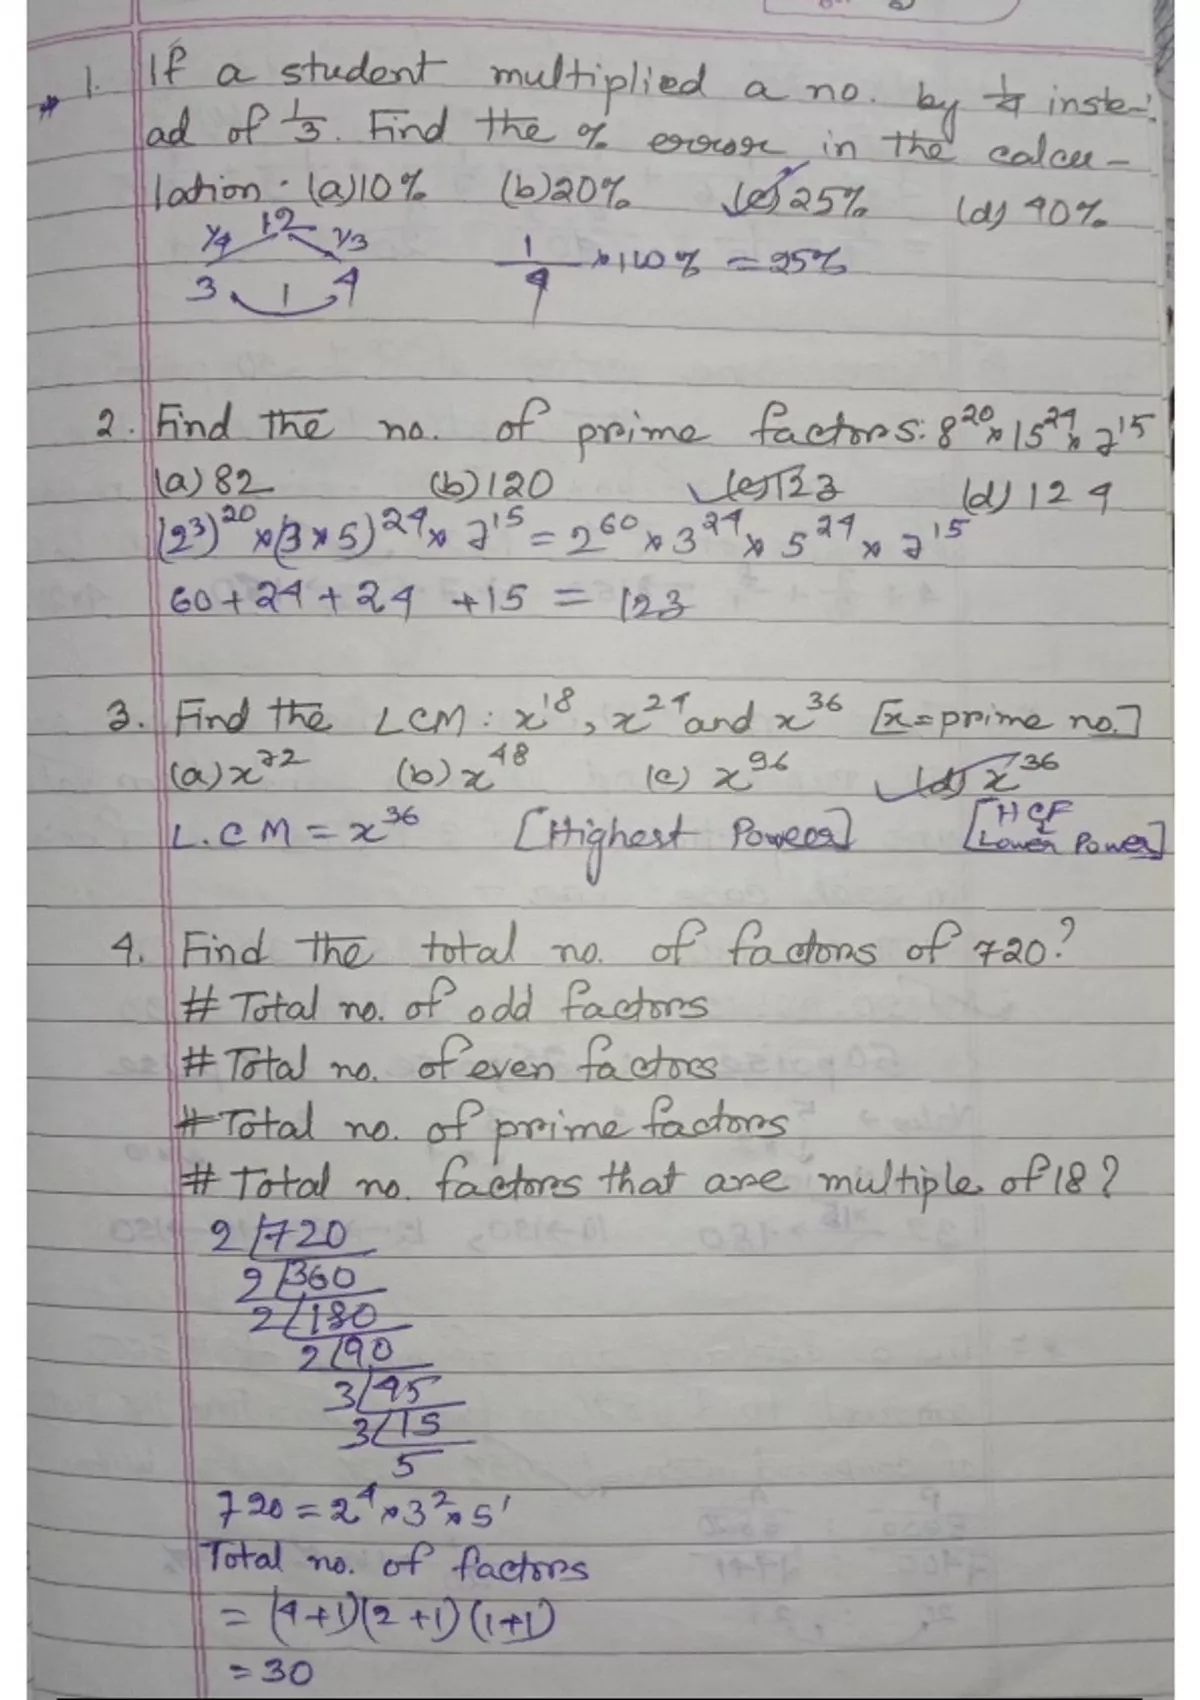 1. If a student multiplied a no. by 1/4 inste-
ad of 1/3. Find the % error in the calcu-
lation. (a) 10% (b) 20% (c) 25% (d) 40%
1/4 12 1/3
3 1 4
1/4 × 100% = 25%
2. Find the no. of prime factors: 8^20 × 15^24 × 7^15
(a) 82 (b) 120 (c) 123 (d) 124
(2^3)^20 × (3 × 5)^24 × 7^15 = 2^60 × 3^24 × 5^24 × 7^15
60 + 24 + 24 + 15 = 123
3. Find the LCM: x^18, x^24 and x^36 [x = prime no.]
(a) x^72 (b) x^48 (c) x^96 (d) x^36
L.C M = x^36 [Highest Power] [HCF
Lower Power]
4. Find the total no. of factors of 720?
# Total no. of odd factors
# Total no. of even factors
# Total no. of prime factors
# Total no. factors that are multiple of 18?
2 720
2 360
2 180
2 90
3 45
3 15
5
720 = 2^4 × 3^2 × 5^1
Total no. of factors
= (4+1)(2+1)(1+1)
= 30